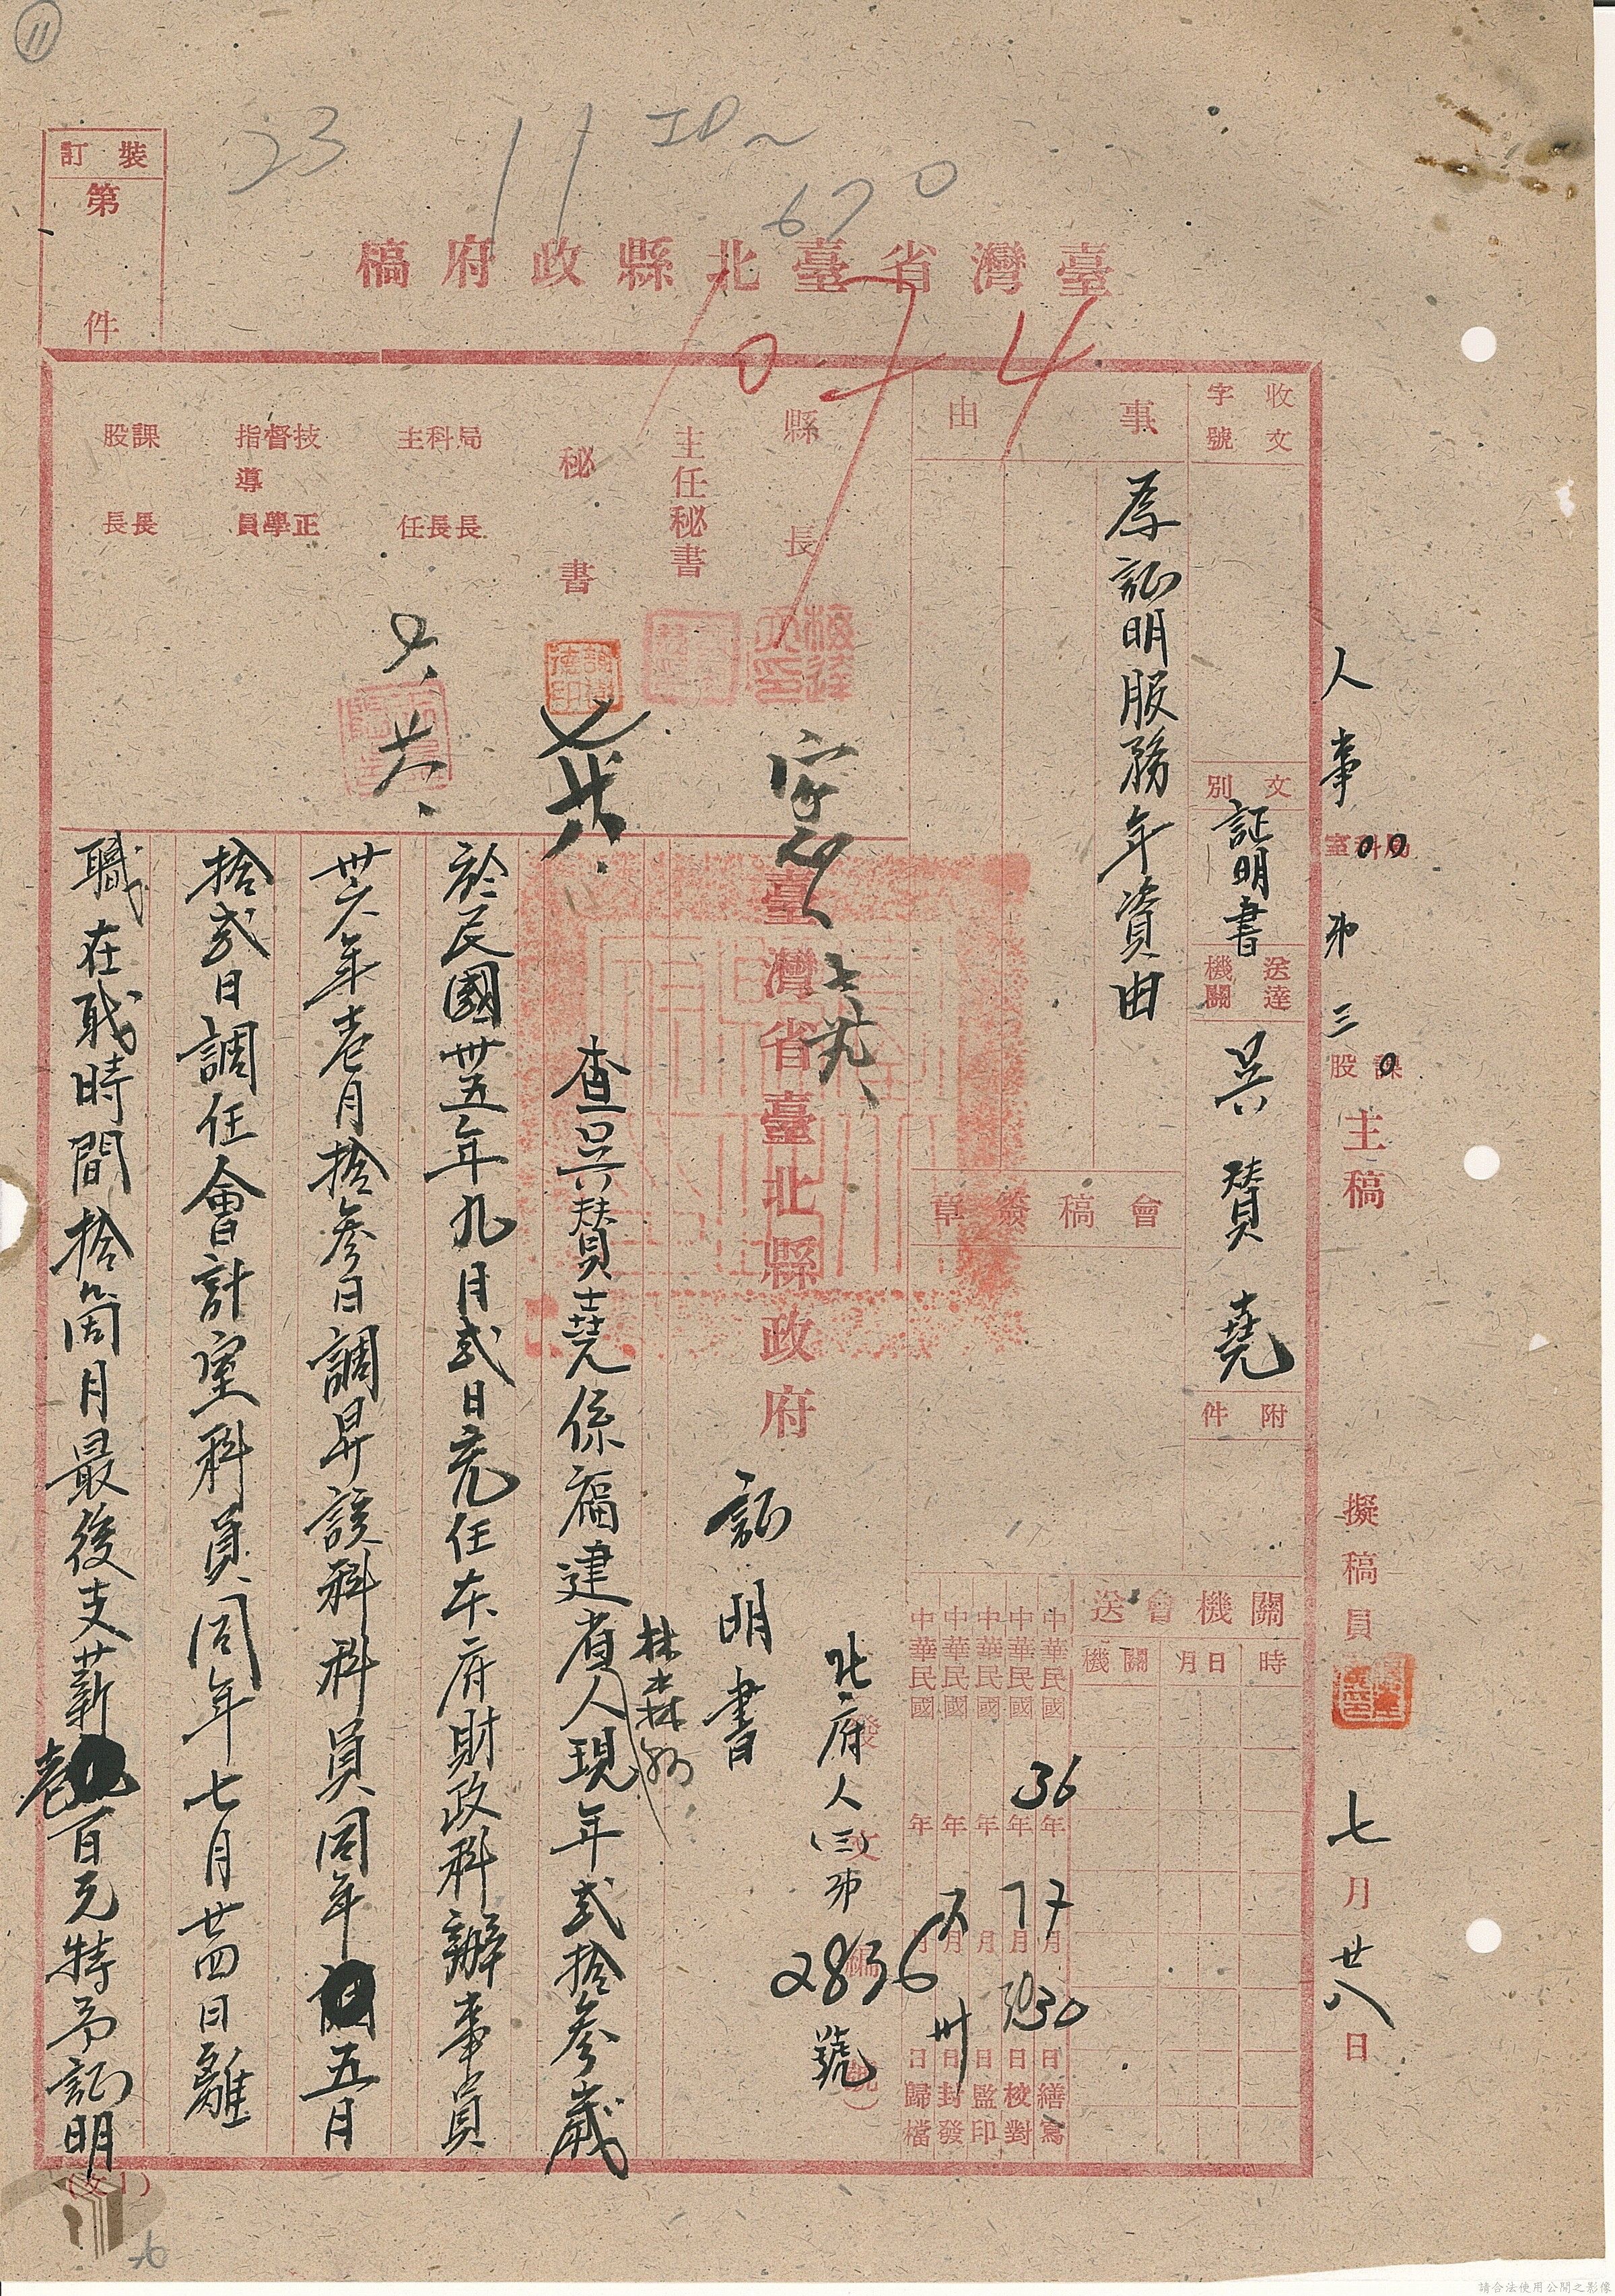 11
23 11 670
裝訂
第 件
臺灣省臺北縣政府稿
1074
人事 室科局 第三 股課 主稿
擬稿員
七月廿八日
收文 字號
文別 証明書
送達機關 吳贊堯
附件
事由
為証明服務年資由
會稿簽章
會送機關
機關 月日 時
中華民國 36年 7月 30日 繕寫
中華民國 年 月 日 校對
中華民國 年 月 日 監印
中華民國 年 月 卅日 封發
中華民國 年 月 日 歸檔
縣長
主任秘書
秘書
局科主 長長任
技督指導 正學員
課股 長長
七、廿八、
臺灣省臺北縣政府 証明書
北府人(三)第2836號
發文 編號
查吳贊堯係福建省林森縣人現年弍拾參歲
於民國卅五年九月弍日充任本府財政科辦事員
卅六年壱月拾參日調昇該科科員同年五月
拾弍日調任會計室科員同年七月廿四日離
職在職時間拾個月最後支薪壱百元特予証明
(文1)
請合法使用公開之影像